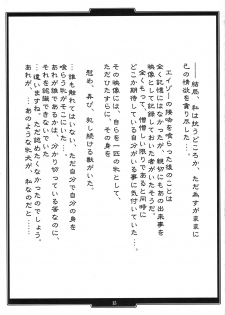 ――結局、私は抗うどころか、ただ為すままに
己の情欲を貪り尽した…
エイゾーの接吻を喰らった後のことは
全く記憶にはなかったが、親切にもあの出来事を
映像として記録しておいた者がいたそうだ。
全くもって、憎憎しい限りであると同時に
どこか期待している自分がいる事に気付いていた…
その映像には、自らを一匹の牝として、
ひたすらに、その身を
慰め、弄び、犯し続ける獣がいた。
…誰も触れてはいない、ただ自分で自分の身を
喰らう牝がそこにいた…
あれが誰であるかは、分かり切っている答なのに、
それを認識できない…
…違いますね。ただ認めたくなかったのでしょう。
あれが、…あのような牝犬が、私なのだと――…